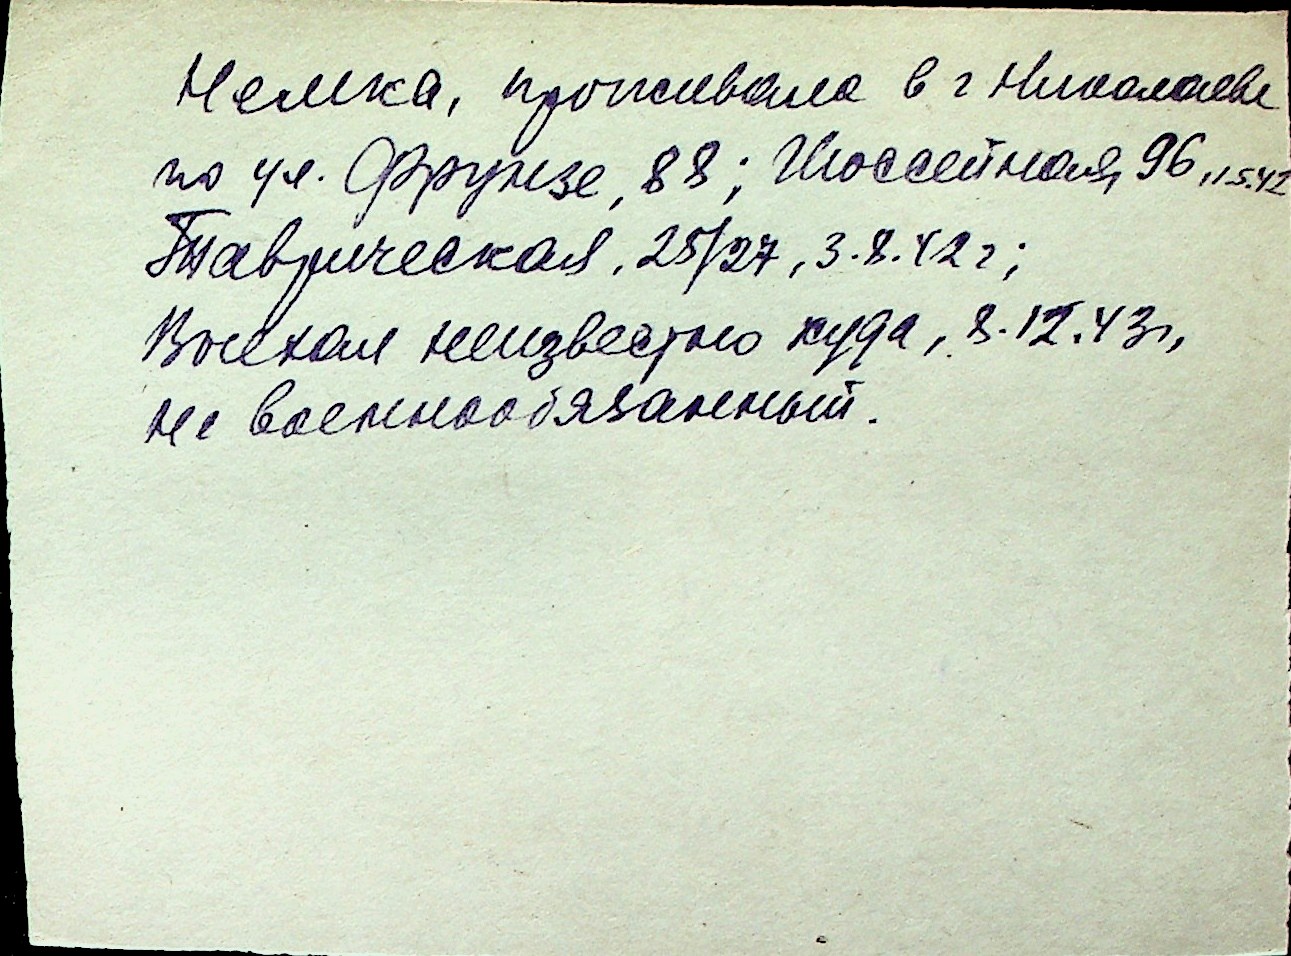 Немка, проживала в г Николаеве
по ул. Фрунзе, 88; Шоссейная, 96, 1.5.42
Таврическая, 25/27, 3.8.42 г;
Выехал неизвестно куда, 8.12.43г,
не военнообязанный.